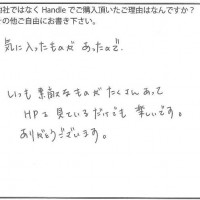 社ではなく Handle でご購入頂いたご理由はなんですか?
の他ご自由にお書き下さい。
気に入ったものが あったので.
いつも 素敵なものが たくさん あって
HPを 見ているだけでも 楽しいです。
ありがとうございます。